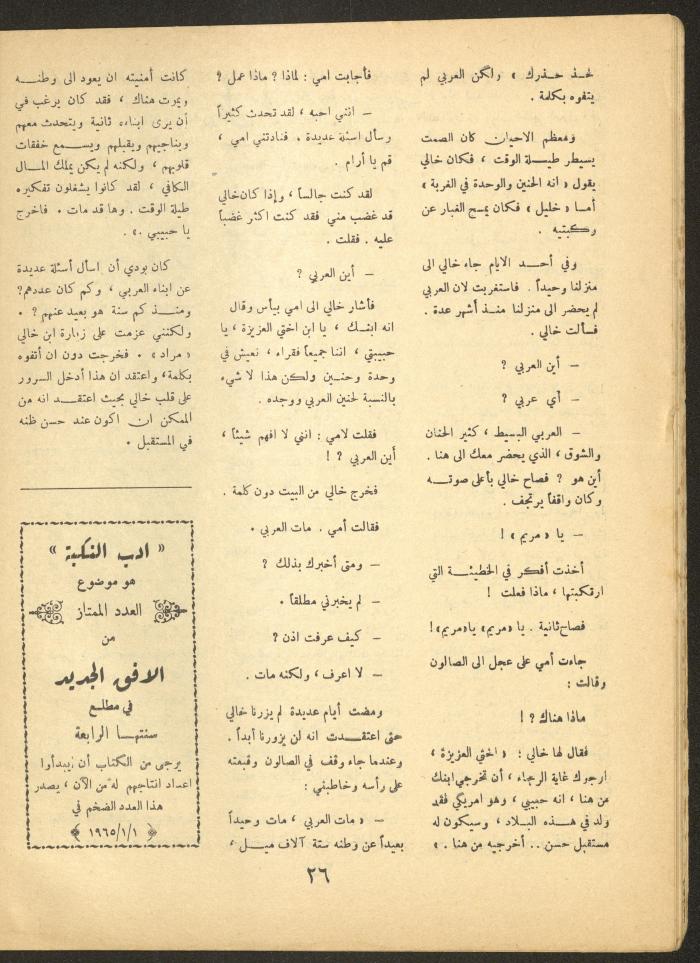 نخذ حذرك » ولكن العربي لم
يتفوه بكلمة .
ومعظم الاحيان كان الصمت
يسيطر طيلة الوقت ، فكان خالي
يقول « انه الحنين والوحدة في الغربة »
أما « خليل » فكان يمسح الغبار عن
ركبتيه .
وفي أحد الايام جاء خالي الى
منزلنا وحيداً . فاستغربت لان العربي
لم يحضر الى منزلنا منذ أشهر عدة .
فسألت خالي .
- أين العربي ?
- أي عربي ?
- العربي البسيط ، كثير الحنان
والشوق ، الذي يحضر معك الى هنا .
أين هو ? فصاح خالي بأعلى صوته
وكان واقفاً يرتجف .
- يا « مريم » !
أخذت أفكر في الخطيئة التي
ارتكبتها ، ماذا فعلت !
فصاح ثانية . يا « مريم » يا « مريم » !
جاءت أمي على عجل الى الصالون
وقالت :
ماذا هناك ? !
فقال لها خالي : « اختي العزيزة ،
ارجوك غاية الرجاء ، أن تخرجي ابنك
من هنا ، انه حبيبي ، وهو امريكي فقد
ولد في هذه البلاد ، وسيكون له
مستقبل حسن .. أخرجيه من هنا . »
فأجابت امي : لماذا ? ماذا عمل ?
- انني احبه ، لقد تحدث كثيراً
وسأل اسئلة عديدة . فنادتني امي ،
قم يا أرام .
لقد كنت جالساً ، وإذا كان خالي
قد غضب مني فقد كنت اكثر غضباً
عليه . فقلت .
- أين العربي ?
فأشار خالي الى امي بيأس وقال
انه ابنك ، يا ابن اختي العزيزة ، يا
حبيبتي ، اننا جميعاً فقراء ، نعيش في
وحدة وحنين ولكن هذا لا شيء
بالنسبة لحنين العربي ووجده .
فقلت لامي : انني لا افهم شيئاً ،
أين العربي ? !
فخرج خالي من البيت دون كلمة .
فقالت أمي . مات العربي .
- ومتى أخبرك بذلك ?
- لم يخبرني مطلقاً .
- كيف عرفت اذن ?
- لا اعرف ، ولكنه مات .
ومضت أيام عديدة لم يزرنا خالي
حتى اعتقدت انه لن يزورنا أبداً .
وعندما جاء وقف في الصالون وقبعته
على رأسه وخاطبني :
- « مات العربي ، مات وحيداً
بعيداً عن وطنه ستة آلاف ميل ،
كانت أمنيته ان يعود الى وطنه
ويموت هناك ، فقد كان يرغب في
أن يرى ابناءه ثانية ويتحدث معهم
ويناجيهم ويقبلهم ويسمع خفقات
قلوبهم ، ولكنه لم يكن يملك المال
الكافي ، لقد كانوا يشغلون تفكيره
طيلة الوقت . وها قد مات . فاخرج
يا حبيبي .» .
كان بودي أن اسأل أسئلة عديدة
عن ابناء العربي ، وكم كان عددهم?
ومنذ كم سنة هو بعيد عنهم ? .
ولكنني عزمت على زيارة ابن خالي
« مراد » . فخرجت دون ان أتفوه
بكلمة، واعتقد ان هذا أدخل السرور
على قلب خالي بحيث اعتقد انه من
الممكن ان اكون عند حسن ظنه
في المستقبل .
« ادب النكبة »
هو موضوع
العدد الممتاز
من
الافق الجديد
في مطلع
سنتها الرابعة
يرجى من الكتاب أن يبدأوا
اعداد انتاجهم له من الآن ، يصدر
هذا العدد الضخم في
﴿ ١٩٦٥/١/١ ﴾
٢٦